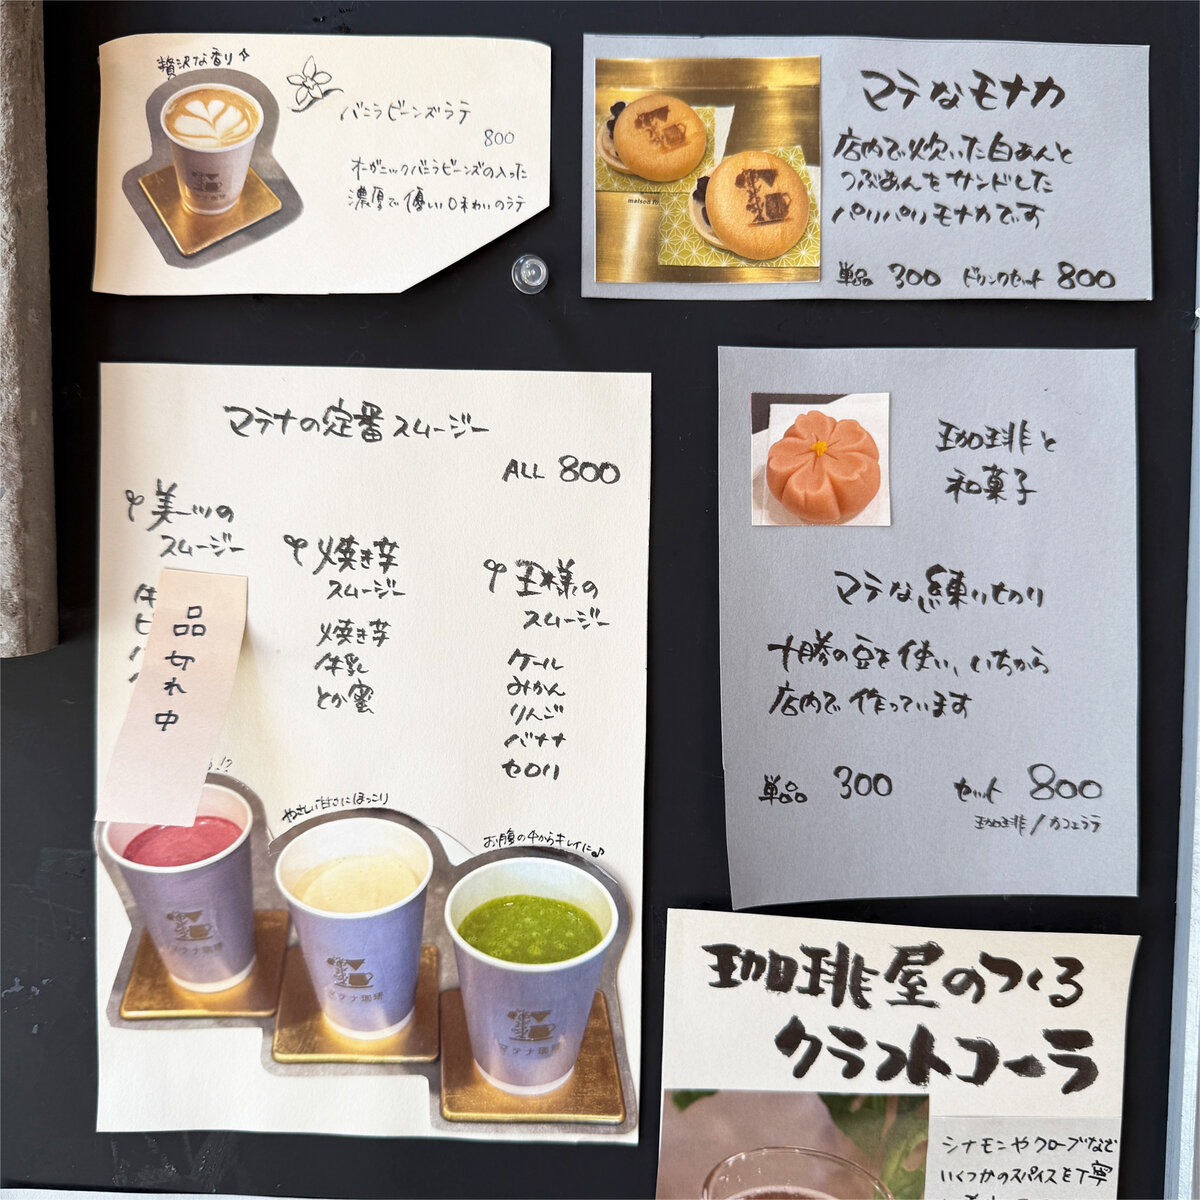 贅沢な香り
バニラビーンズラテ
800
オーガニックバニラビーンズの入った
濃厚で優しい味わいのラテ
マテなモナカ
店内で炊いた白あんと
つぶあんをサンドした
パリパリモナカです
単品 300 ドリンクセット 800
maison
マテナの定番スムージー
ALL 800
美ツの
スムージー
牛
ビ
品切れ中
焼き芋
スムージー
焼き芋
牛乳
とか蜜
王様の
スムージー
ケール
みかん
りんご
バナナ
セロリ
やさしい甘さにほっこり
お腹の中からキレイに♪
マテナ珈琲
マテナ珈琲
マテナ珈琲
珈琲と
和菓子
マテな練り切り
十勝の豆を使い、いちから
店内で作っています
単品 300 セット 800
珈琲/カフェラテ
珈琲屋のつくる
クラフトコーラ
シナモンやクローブなど
いくつかのスパイスを丁寧